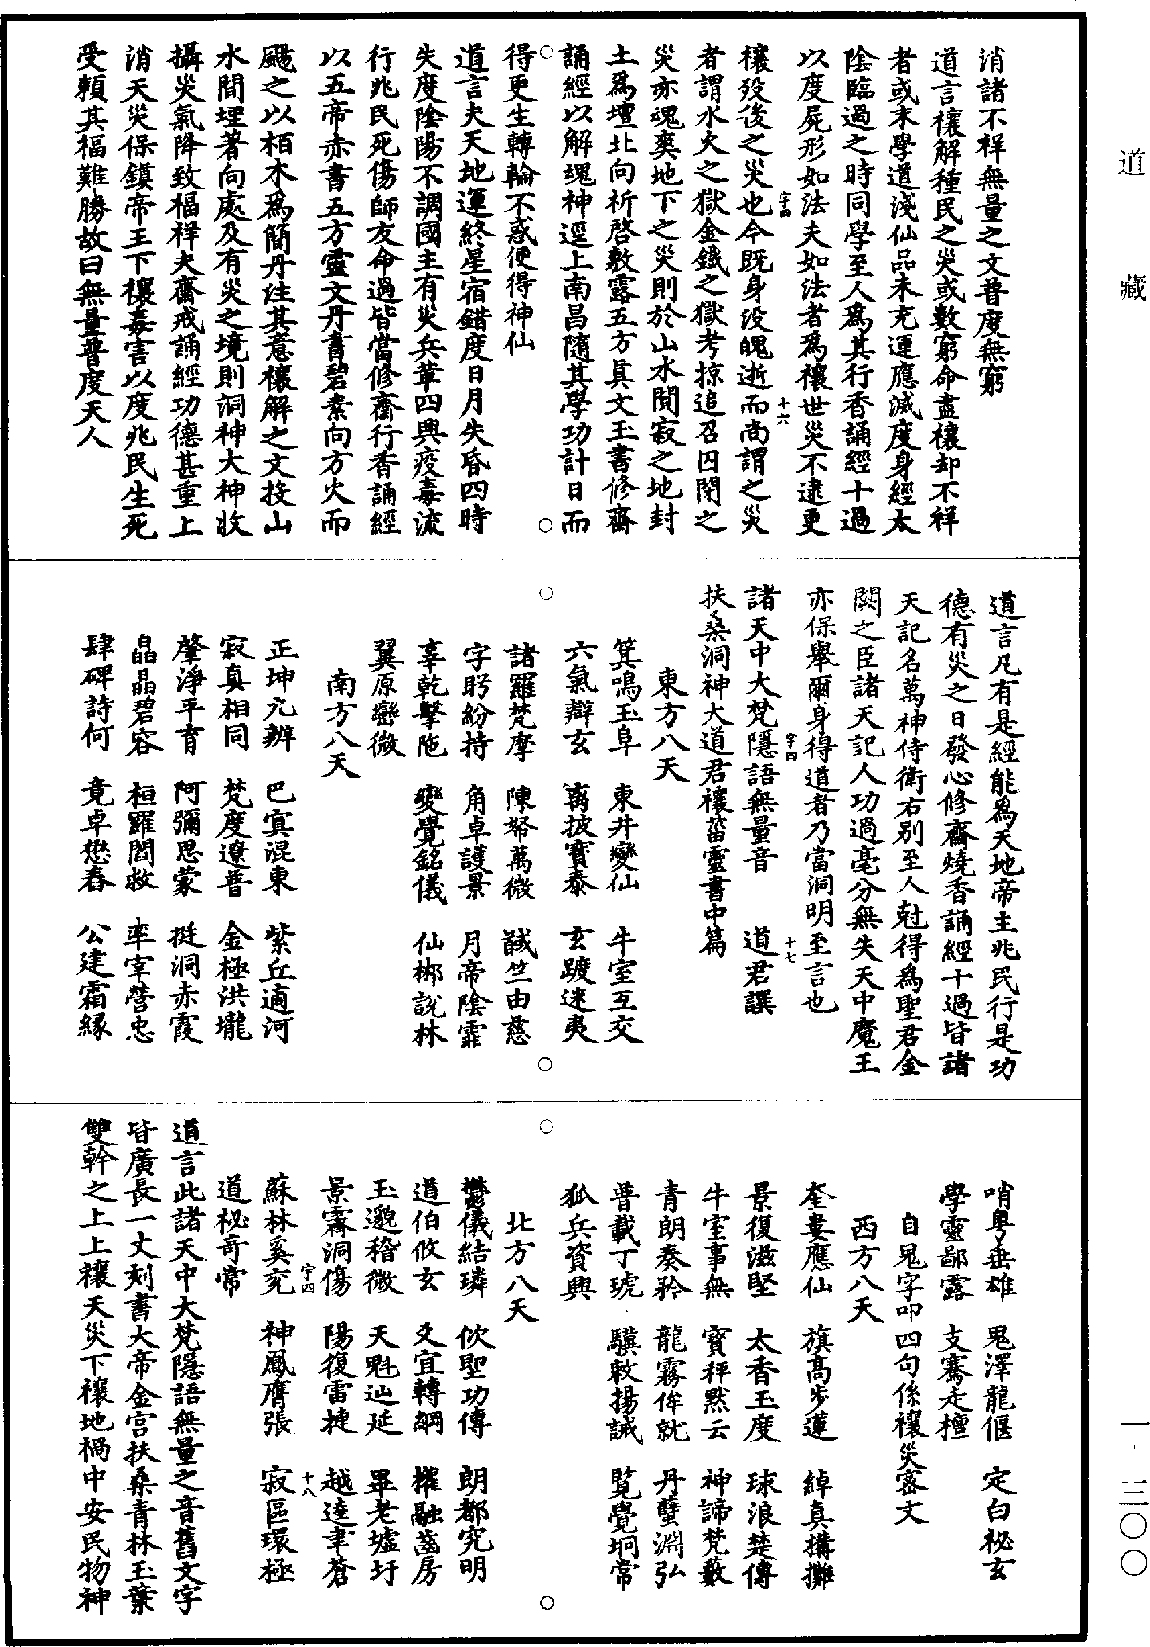 道藏
一·三〇〇
消諸不祥無量之文普度無窮
道言禳解種民之災或數窮命盡禳却不祥
者或末學道淺仙品未充運應滅度身經太
陰臨過之時同學至人為其行香誦經十過
以度屍形如法夫如法者為禳世災不逮更
禳歿後之災也今既身沒魄逝而尚謂之災
字四 十六
者謂水火之獄金鐵之獄考掠追召囚閉之
災亦魂爽地下之災則於山水閒寂之地封
土為壇北向祈啓敷露五方真文玉書修齋
誦經以解魂神逕上南昌隨其學功計日而
得更生轉輪不惑便得神仙
道言夫天地運終星宿錯度日月失昏四時
失度陰陽不調國主有災兵革四興疫毒流
行兆民死傷師友命過皆當修齋行香誦經
以五帝赤書五方靈文丹書碧素向方火而
颺之以栢木為簡丹注其意禳解之文投山
水間埋著向處及有災之境則洞神大神收
攝災氣降致福祥夫齋戒誦經功德甚重上
消天災保鎮帝王下禳毒害以度兆民生死
受賴其福難勝故曰無量普度天人
道言凡有是經能為天地帝主兆民行是功
德有災之日發心修齋燒香誦經十過皆諸
天記名萬神侍衛右別至人尅得為聖君金
闕之臣諸天記人功過毫分無失天中魔王
亦保舉爾身得道者乃當洞明至言也
字四 十七
諸天中大梵隱語無量音 道君譔
扶桑洞神大道君禳菑靈書中篇
東方八天
箕鳴玉阜 東井變仙 牛室互交
六氣辯玄 离披寶泰 玄踱迷夷
諸羅梵摩 陳帑萬微 誠竺由慈
字盻紛持 角卓護景 月帝陰霏
辜乾擊陁 變覺銘儀 仙梆說林
翼原巒微
南方八天
正坤亢辨 巴寘混東 紫丘適河
寂真相同 梵度遼普 金極洪壠
肇淨平育 阿彌思蒙 挺洞赤霞
晶晶碧容 桓羅閻救 率宰營忠
肆碑詩何 竟卓懋春 公建霜緣
哨粤垂雄 鬼澤龍偃 定白祕玄
學靈鄙露 支騫走檀
自鬼字叩四句係禳災密文
西方八天
奎婁應仙 旗高步蓮 綽真搆攤
景復滋堅 太香玉度 球浪楚傳
牛室事無 寶秤黙云 神諦梵數
青朗奏矜 龍霧侔就 丹蠥淵弘
普載丁琥 驥敕揚誡 覽覺坰常
狐兵資興
北方八天
鬱儀結璘 佽聖功傳 朗都究明
道伯攸玄 爻宜轉綱 㩲融蓝房
玉邈稽微 天魁辿延 畢老墟圩
景霧洞傷 陽復雷捷 越達聿蒼
字四 十八
蘇林奚兖 神鳳膺張 寂區環極
道祕奇常
道言此諸天中大梵隱語無量之音舊文字
皆廣長一丈刻書大帝金宫扶桑青林玉葉
雙幹之上上禳天災下禳地禍中安民物神